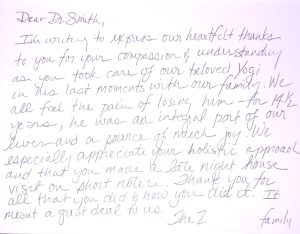 Dear Dr. Smith,
I'm writing to express our heartfelt thanks
to you for your compassion & understanding
as you took care of our beloved Yogi
in his last moments with our family. We
all feel the pain of losing him - for 14 1/2
years, he was an integral part of our
lives and a source of much joy. We
especially appreciate your holistic approach
and that you made a late night house
visit on short notice. Thank you for
all that you did & how you did it. It
meant a great deal to us. The Z. family